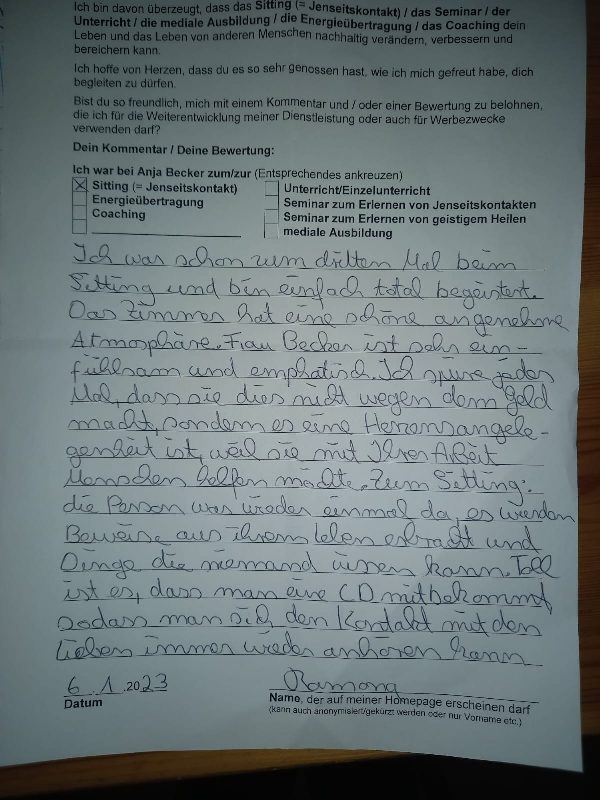 Ich bin davon überzeugt, dass das Sitting (= Jenseitskontakt) / das Seminar / der
Unterricht / die mediale Ausbildung / die Energieübertragung / das Coaching dein
Leben und das Leben von anderen Menschen nachhaltig verändern, verbessern und
bereichern kann.
Ich hoffe von Herzen, dass du es so sehr genossen hast, wie ich mich gefreut habe, dich
begleiten zu dürfen.
Bist du so freundlich, mich mit einem Kommentar und / oder einer Bewertung zu belohnen,
die ich für die Weiterentwicklung meiner Dienstleistung oder auch für Werbezwecke
verwenden darf?
Dein Kommentar / Deine Bewertung:
Ich war bei Anja Becker zum/zur (Entsprechendes ankreuzen)
Sitting (= Jenseitskontakt)
Energieübertragung
Coaching
Unterricht/Einzelunterricht
Seminar zum Erlernen von Jenseitskontakten
Seminar zum Erlernen von geistigem Heilen
mediale Ausbildung
Ich war schon zum dritten Mal beim
Sitting und bin einfach total begeistert.
Das Zimmer hat eine schöne angenehme
Atmosphäre. Frau Becker ist sehr ein-
fühlsam und emphatisch. Ich spüre jedes
Mal, dass sie dies nicht wegen dem Geld
macht, sondern es eine Herzensangele-
genheit ist, weil sie mit Ihrer Arbeit
Menschen helfen möchte. Zum Sitting:
die Person war wieder einmal da, es wurden
Beweise aus ihrem Leben erbracht und
Dinge die niemand wissen kann. Toll
ist es, dass man eine CD mitbekommt,
sodass man sich den Kontakt mit den
Lieben immer wieder anhören kann
6.1.2023
Datum
Ramona
Name, der auf meiner Homepage erscheinen darf
(kann auch anonymisiert/gekürzt werden oder nur Vorname etc.)